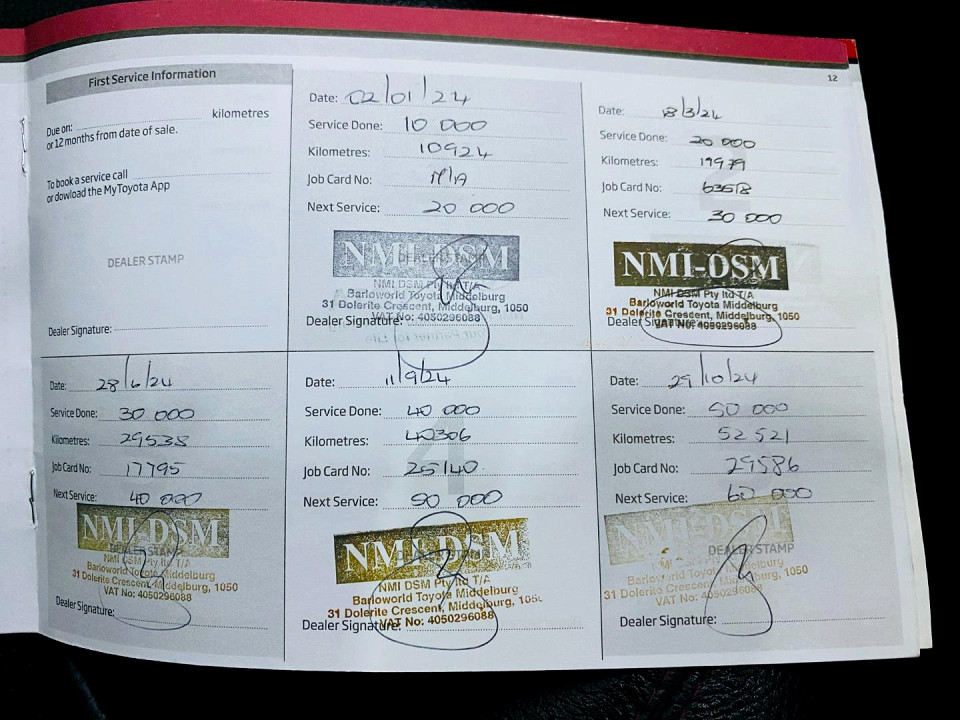 12
First Service Information
Due on: kilometres
or 12 months from date of sale.
To book a service call
or dowload the MyToyota App
DEALER STAMP
Dealer Signature:
Date: 02/01/24
Service Done: 10 000
Kilometres: 10924
Job Card No: N/A
Next Service: 20 000
NMI-DSM
NMI DSM Pty ltd T/A
Barloworld Toyota Middelburg
31 Dolerite Crescent, Middelburg, 1050
VAT No: 4050296088
Dealer Signature:
Date: 18/3/24
Service Done: 20 000
Kilometres: 19979
Job Card No:
Next Service: 30 000
NMI-DSM
NMI DSM Pty ltd T/A
Barloworld Toyota Middelburg
31 Dolerite Crescent, Middelburg, 1050
VAT No: 4050296088
Dealer Signature:
Date: 28/6/24
Service Done: 30 000
Kilometres: 29538
Job Card No: 17795
Next Service: 40 000
NMI-DSM
DEALER STAMP
NMI DSM Pty ltd T/A
Barloworld Toyota Middelburg
31 Dolerite Crescent, Middelburg, 1050
VAT No: 4050296088
Dealer Signature:
Date: 11/9/24
Service Done: 40 000
Kilometres: 40306
Job Card No: 25140
Next Service: 50 000
NMI-DSM
NMI DSM Pty ltd T/A
Barloworld Toyota Middelburg
31 Dolerite Crescent, Middelburg, 1050
VAT No: 4050296088
Dealer Signature:
Date: 29/10/24
Service Done: 50 000
Kilometres: 52 521
Job Card No: 29586
Next Service: 60 000
NMI-DSM
DEALER STAMP
NMI DSM Pty ltd T/A
Barloworld Toyota Middelburg
31 Dolerite Crescent, Middelburg, 1050
VAT No: 4050296088
Dealer Signature: